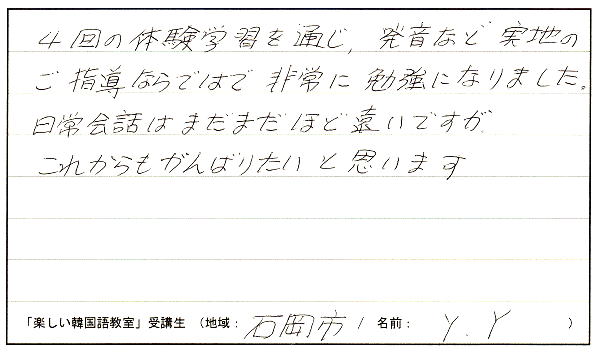 4回の体験学習を通じ,発音など実地の
ご指導ならではで非常に勉強になりました。
日常会話はまだまだほど遠いですが
これからもがんばりたいと思います
「楽しい韓国語教室」受講生 (地域: 石岡市 / 名前: Y.Y )